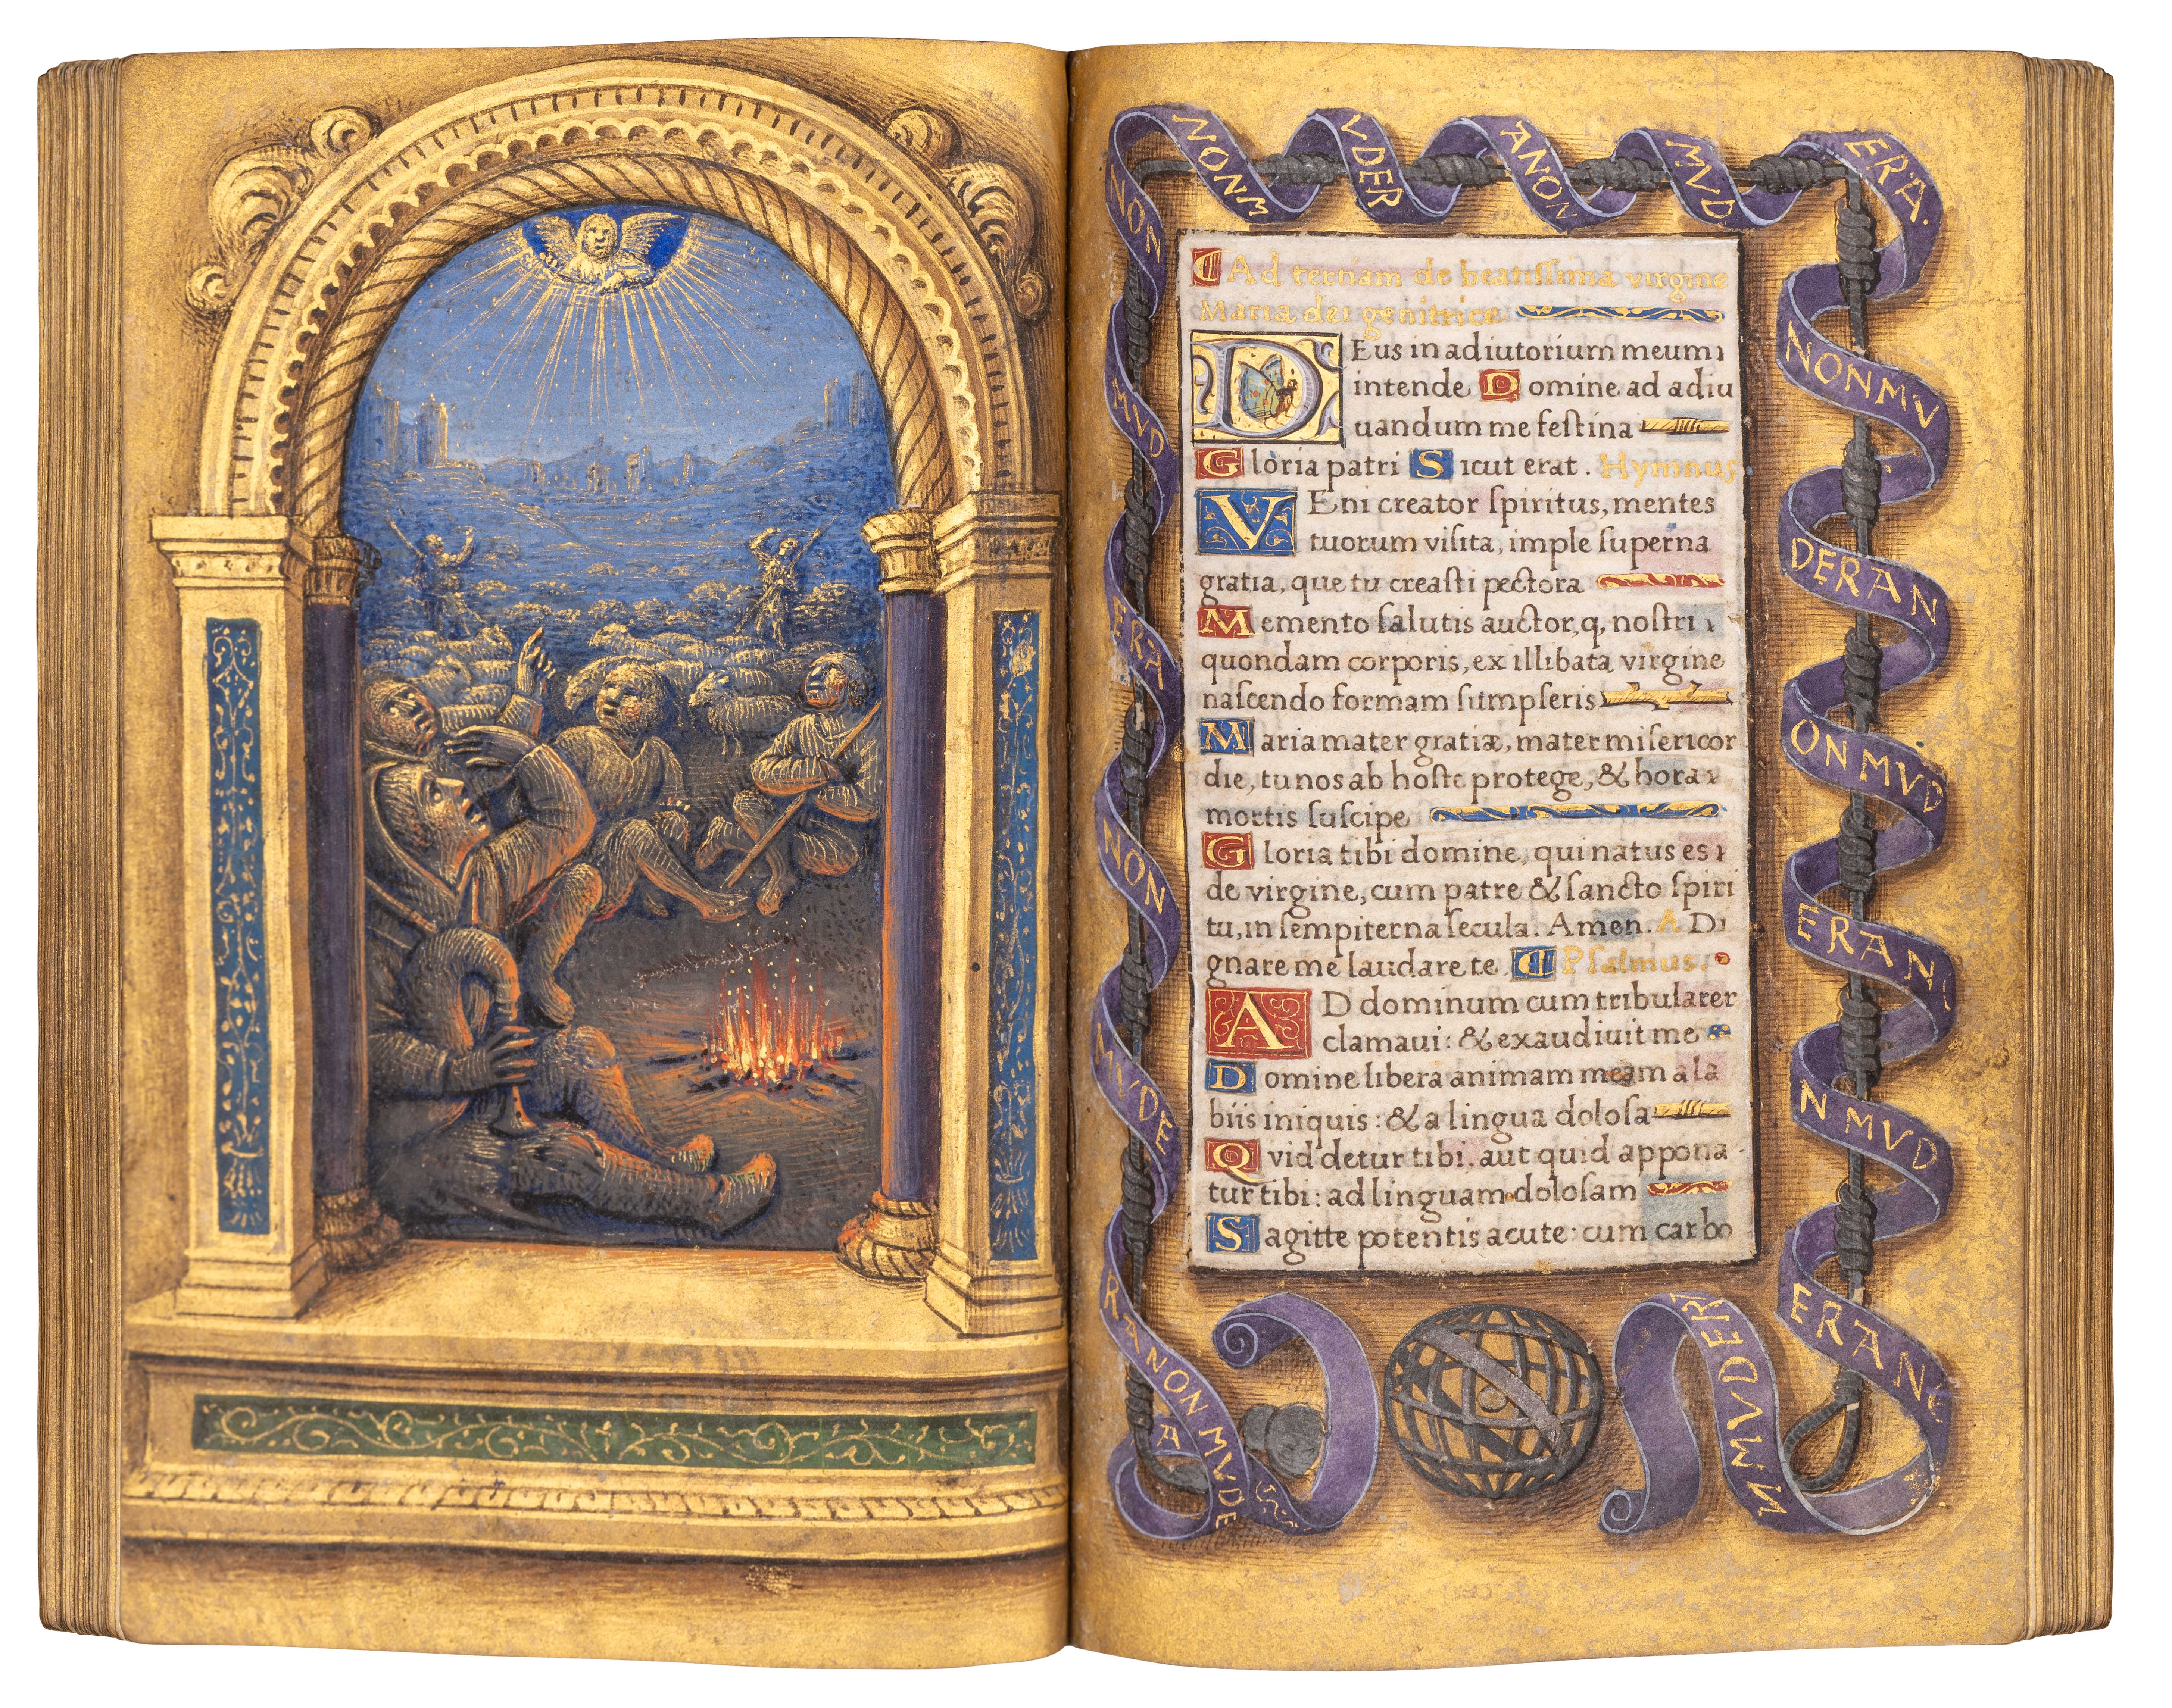 NON NONM VDER ANON MVD ERA.
MVD
ERA
NON
MVDE
RA NON MVDE
A
NONMV
DERAN
ONMVD
ERAN
N MVD
ERANC
Ad tertiam de beatissima virgine
Maria dei genitrice
DEus in adiutorium meum
intende Domine ad adiu
uandum me festina
Gloria patri Sicut erat. Hymnus
VEni creator spiritus, mentes
tuorum visita, imple superna
gratia, que tu creasti pectora
Memento salutis auctor, q, nostri
quondam corporis, ex illibata virgine
nascendo formam sumpseris
Maria mater gratiæ, mater misericor
die, tu nos ab hoste protege, & hora
mortis suscipe
Gloria tibi domine, qui natus es
de virgine, cum patre & sancto spiri
tu, in sempiterna secula. Amen. A Di
gnare me laudare te. Psalmus.
AD dominum cum tribularer
clamaui: & exaudiuit me
Domine libera animam meam a la
biis iniquis: & a lingua dolosa
Qvid detur tibi. aut quid appona
tur tibi: ad linguam dolosam
Sagitte potentis acute: cum carbo